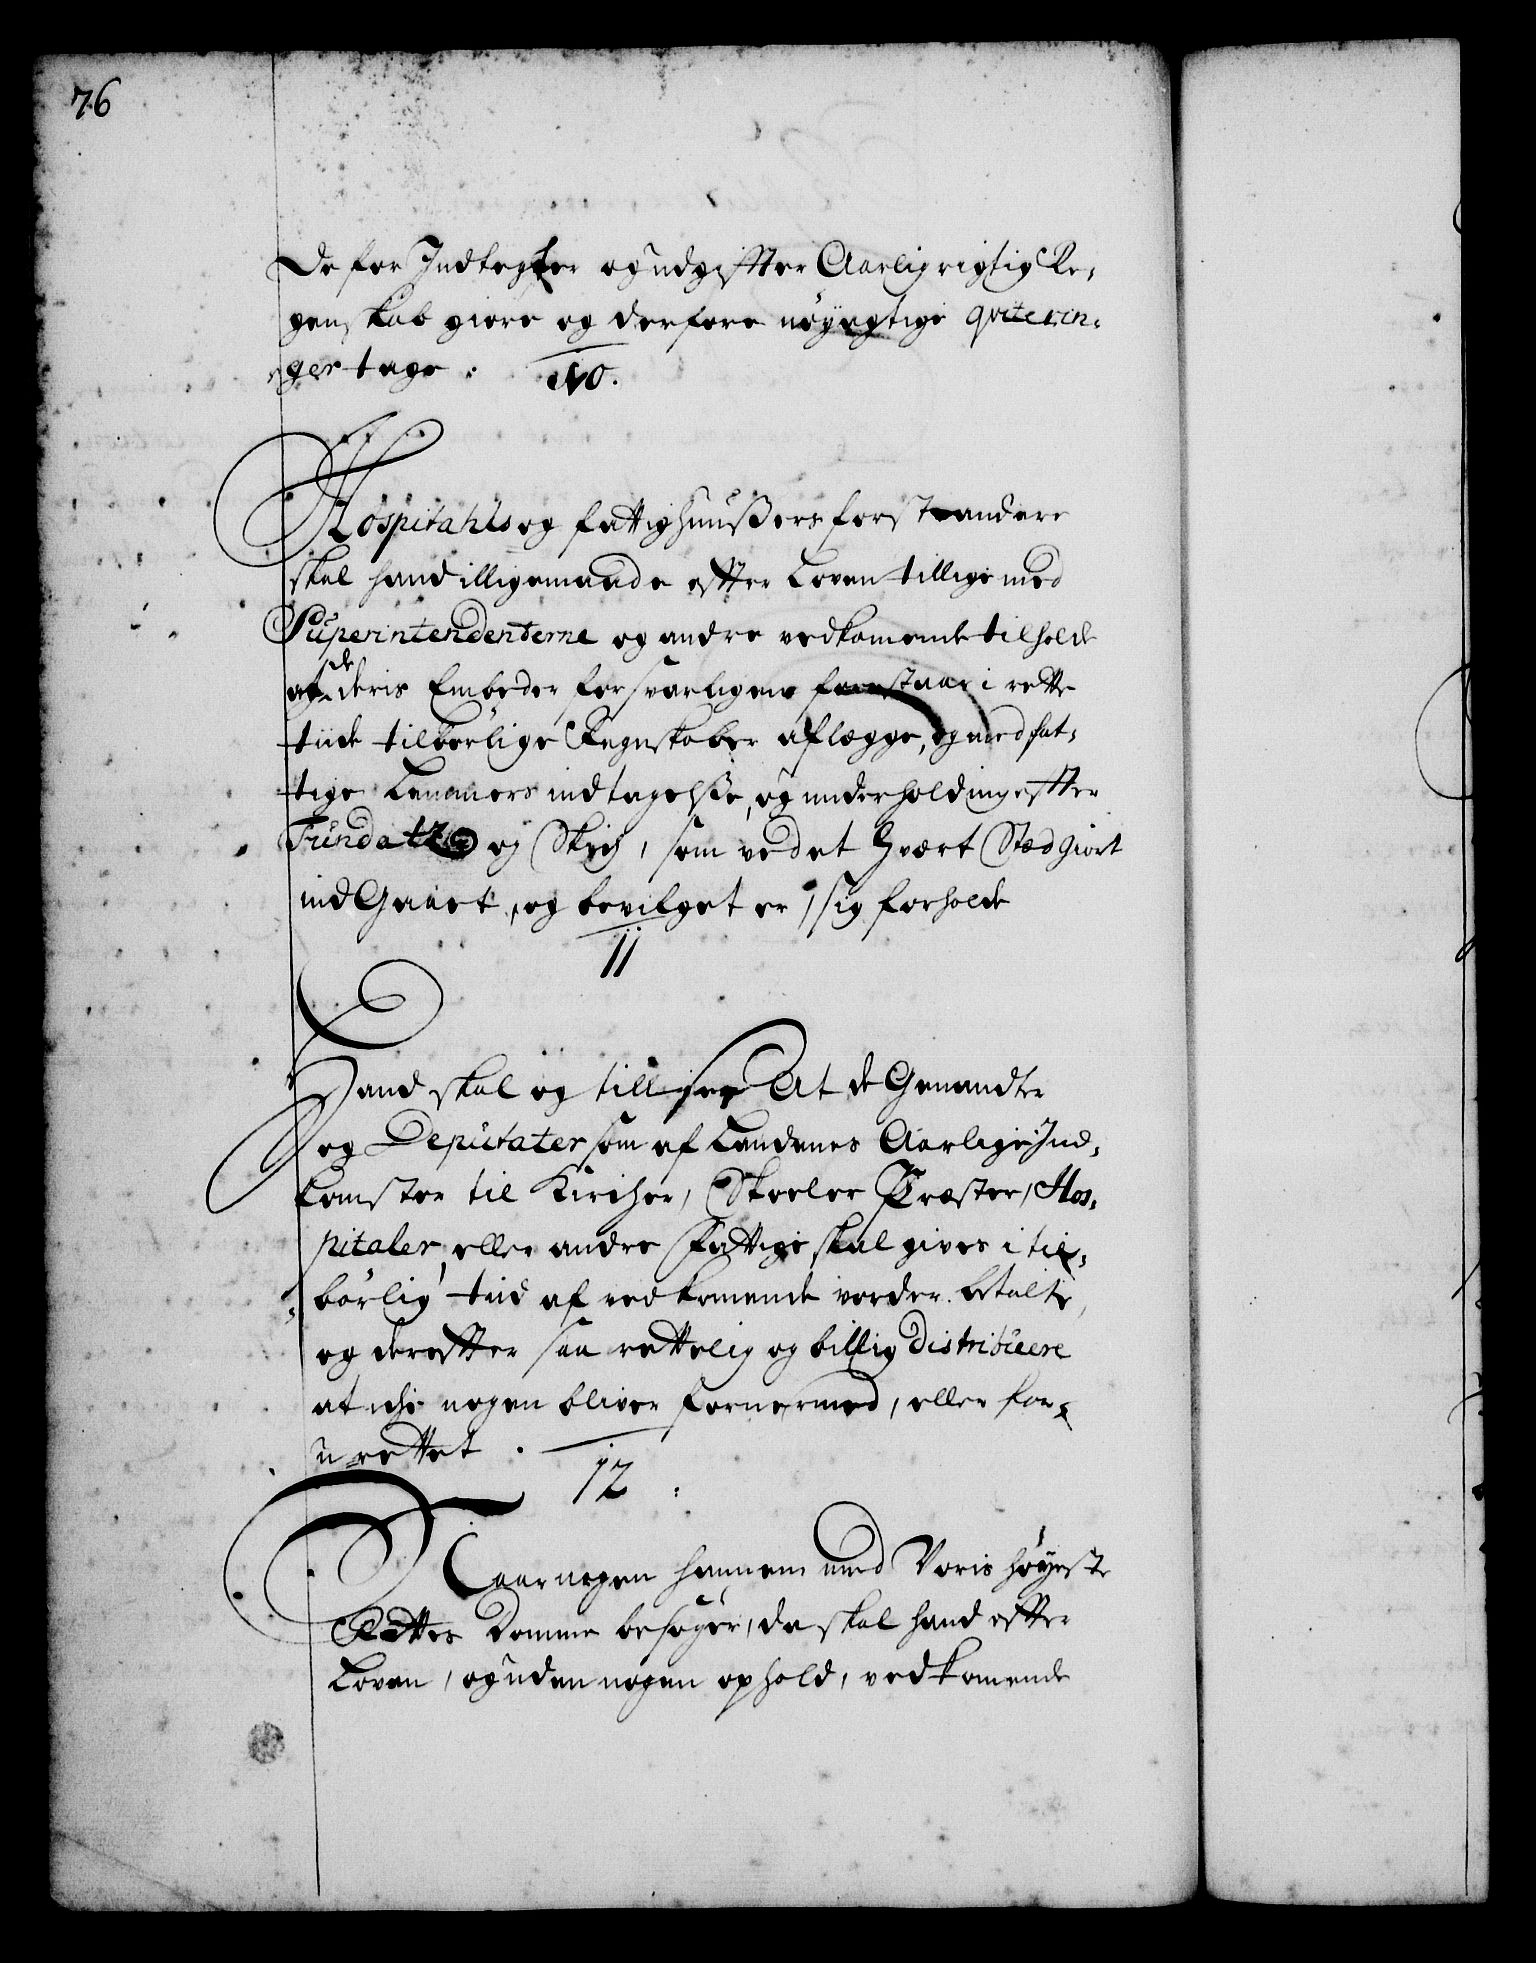 76
De for Indtegter og udgiffter Aarlig rigtig Re,
genskab giøre og derfore nøyagtige qviterin,
ger tage.
10.
Hospitahls og fattighuußers forstandere
skal hand illigemaade effter Loven tillige med
Superintendenterne og andre vedkomende tilholde
at de deris Embeder forsvarligen forestaar i rette
tiide tilbørlige Regnskaber aflegge, og med fat,
tige Lemmers indtagelße, og underholding effter
Fundatzer og Skich, som ved et hvært Stæd giort
ind Gaaet, og bevilget er, sig forholde
11
Hand skal og till see At de Genandter
og Deputater som af Landenes Aarlige Ind,
komster til Kircher, Skoeler Præster, Hos,
pitaler, eller andre Fattige skal gives i til,
børlig tiid af vedkomende vorder betalte,
og dereffter saa rettelig og billig distribuere
at iche nogen bliver fornermed, eller for,
urettet.
12.
Naar nogen hannem med Voris høyeste
Rettes Domme besøger, da skal hand effter
Loven, og uden nogen ophold, vedkomende